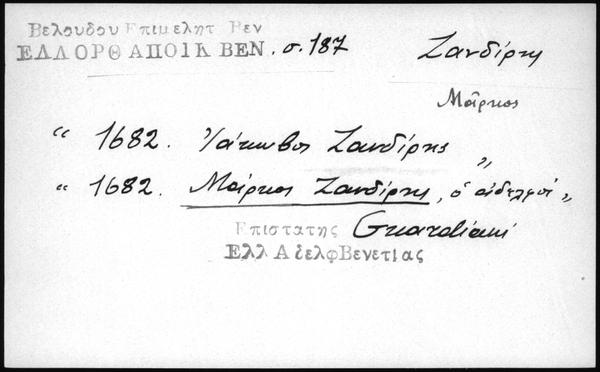 Βελουδου Επιμελητ Βεν
ΕΛΛ ΟΡΘ ΑΠΟΙΚ ΒΕΝ. σ. 187 Ζανδίρης
Μᾶρκος
“ 1682. Ἰάκωβος Ζανδίρης „
“ 1682. Μάρκος Ζανδίρης, ὁ ἀδελφός „
Επιστατης Guardiani
Ελλ Αδελφ Βενετιας